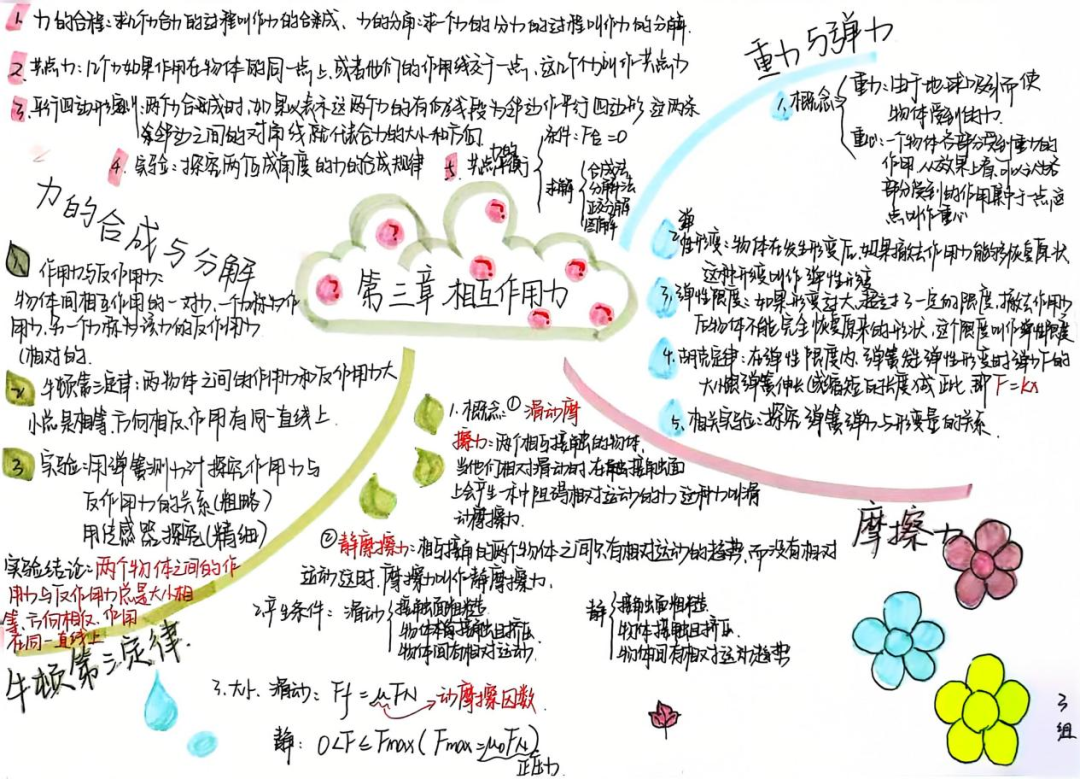 1. 力的合程:求几个力合力的过程叫作力的合成、力的分解:求一个力的分力的过程叫作力的分解.
2. 共点力:几个力如果作用在物体的同一点上,或者他们的作用线交于一点,这几个力叫作共点力
3. 平行四边形定则:两个力合成时,如果以表示这两个力的有向线段为邻边作平行四边形 这两条
邻边之间的对角线就代表合力的大小和方向.
4. 实验:探究两个互成角度的力的合成规律
5. 共点平衡
条件:F合=0
求解
合成法
分解法
正交分解
图解
力的合成与分解
第三章 相互作用力
重力与弹力
1. 概念
重力:由于地球吸引而使
物体受到的力.
重心:一个物体各部分受到重力的
作用,从效果上看,可以认为各
部分受到的作用集中于一点,这
点叫作重心
2. 弹性形变:物体在发生形变后,如果撤去作用力能够恢复原状
这种形变叫作弹性形变
3. 弹性限度:如果形变过大,超过了一定的限度,撤去作用力
后物体不能完全恢复原来的形状,这个限度叫作弹性限度
4. 胡克定律:在弹性限度内,弹簧发生弹性形变时弹力F的
大小跟弹簧伸长(或缩短)的长度x成正比,即 F=kx
5. 相关实验:探究弹簧弹力与形变量的关系.
1. 作用力与反作用力:
物体间相互作用的一对力,一个力称为作
用力,另一个力称为该力的反作用力
(相对的.
2 牛顿第三定律:两物体之间的作用力和反作用力大
小总是相等、方向相反、作用有同一直线上.
3 实验:用弹簧测力计探究作用力与
反作用力的关系(粗略)
用传感器探究(精细)
实验结论:两个物体之间的作
用力与反作用力总是大小相
等,方向相反、作用
在同一直线上
牛顿第三定律.
摩擦力
1. 概念:①滑动摩
擦力:两个相互接触的物体,
当他们相对滑动时,在接触面
上会产生一种阻碍相对运动的力 这种力叫滑
动摩擦力.
②静摩擦力:相互接触的两个物体之间只有相对运动的趋势,而没有相对
运动,这时,摩擦力叫作静摩擦力.
2. 产生条件:滑动
接触面粗糙
物体相互接触且挤压
物体间有相对运动.
静
接触面粗糙
物体接触且挤压.
物体间有相对运动趋势
3. 大小. 滑动:Ff=μFN→动摩擦因数.
静:0<F≤Fmax(Fmax=μ0FN)
正压力.
3
组